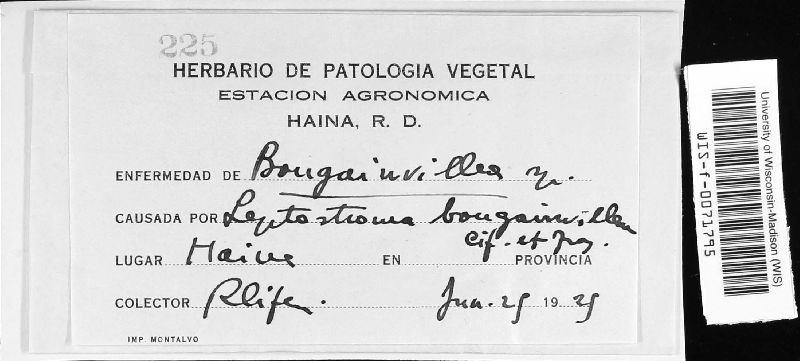 225
HERBARIO DE PATOLOGIA VEGETAL
ESTACION AGRONOMICA
HAINA, R. D.
ENFERMEDAD DE Bougainvillea sp.
CAUSADA POR Leptostroma bougainvilleae
Cif. et
LUGAR Haina EN PROVINCIA
COLECTOR 19 29
IMP. MONTALVO
University of Wisconsin-Madison (WIS)
WIS-f-0071795